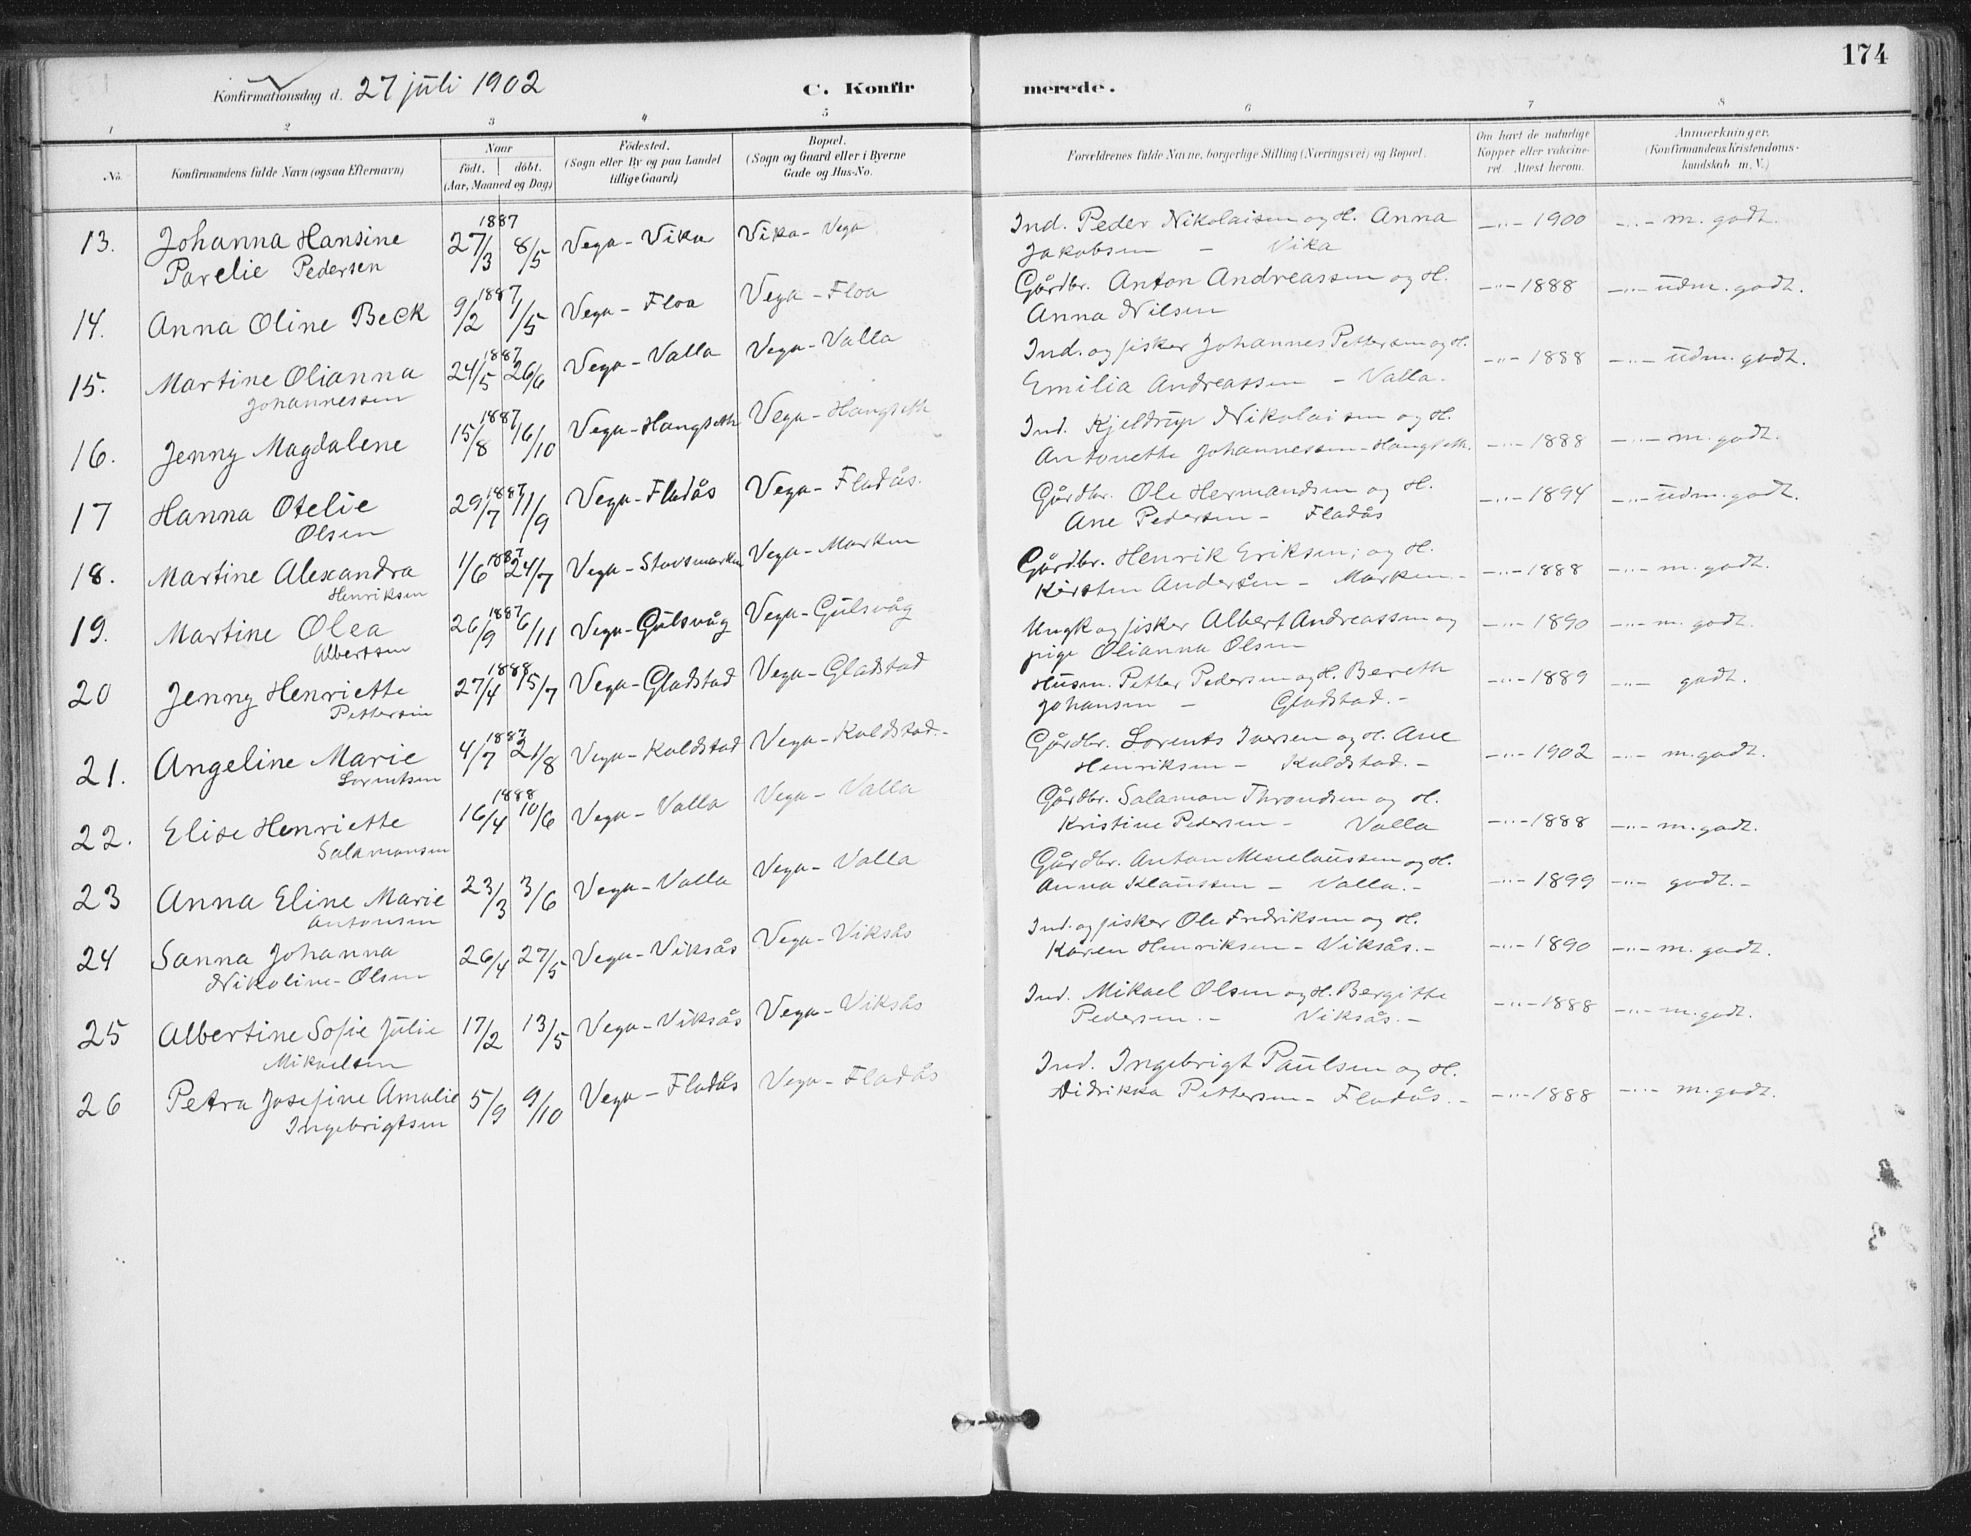 174
Konfirmationsdag d. 27 juli 1902 C. Konfirmerede.
1 2 3 4 5 6 7 8
No. Konfirmandens fulde Navn (ogsaa Efternavn) Naar født. døbt. (Aar, Maaned og Dag) Fødested. (Sogn eller By og paa Landet tillige Gaard) Bopæl. (Sogn og Gaard eller i Byerne Gade og Hus-No. Forældrenes fulde Navne, borgerlige Stilling (Næringsvei) og Bopæl. Om havt de naturlige Kopper eller vakcineret Attest herom. Anmærkninger. (Konfirmandens Kristendomskundskab m. V.)
13. Johanna Hansine 1887 27/3 8/5 Vega - Vika Vika - Vega Ind. Peder Nikolaisen og H. Anna -"- 1900 -"- m. godt.
Parelie Pedersen Jakobsen - Vika
14. Anna Oline Beck 1887 9/2 1/5 Vega - Floa Vega - Floa Gårdbr. Anton Andreassen og H. -"- 1888 -"- udm. godt.
Anna Nilsen
15. Martine Olianna 1887 24/5 26/6 Vega - Valla Vega - Valla Ind. og fisker Johannes Pettersen og H. -"- 1888 -"- udm. godt.
Johannessen Emilia Andreassen - Valla.
16. Jenny Magdalene 1887 15/8 16/10 Vega - Hangseth Vega - Hangseth Ind. Kjeldrup Nikolaisen og H. -"- 1888 -"- m. godt.
Antonette Johannessen - Hangseth.
17 Hanna Otelie 1887 29/7 11/9 Vega - Fladås Vega - Fladås. Gårdbr. Ole Hermandsen og H. -"- 1894 -"- udm. godt.
Olsen Ane Pedersen - Fladås
18. Martine Alexandra 1887 1/6 24/7 Vega - Vega - Marken Gårdbr. Henrik Eriksen; og H. -"- 1888 -"- m. godt.
Henriksen Kirsten Andersen - Marken. -
19. Martine Olea 1887 26/9 6/11 Vega - Gulsvåg Vega - Gulsvåg Ungk og fisker Albert Andreassen og -"- 1890 -"- m. godt.
Albertsen pige Olianna Olsen
20 Jenny Henriette 1888 27/4 15/7 Vega - Gladstad Vega - Gladstad Husm. Petter Pedersen og H. Bereth -"- 1889 -"- godt.
Pettersen Johansen - Gladstad. -
21. Angeline Marie 1887 4/7 21/8 Vega - Kaldstad Vega - Kaldstad. - Gårdbr. Lorents Iversen og H. Ane -"- 1902 -"- m. godt.
Lorentsen Henriksen - Kaldstad. -
22. Elise Henriette 1888 16/4 10/6 Vega - Valla Vega - Valla Gårdbr. Salamon Throndsen og H. -"- 1888 -"- m. godt.
Salamonsen Kristine Pedersen - Valla
23 Anna Eline Marie 23/3 3/6 Vega - Valla Vega - Valla Gårdbr. Anton Menelaussen og H. -"- 1899 -"- godt. -
Antonsen Anna Klaussen - Valla. -
24 Sanna Johanna 26/4 27/5 Vega - Viksås Vega - Viksås Ind. og fisker Ole Fredriksen og H. -"- 1890 -"- m. godt.
Nikoline - Olsen Karen Henriksen - Viksås. -
25 Albertine Sofie Julie 17/2 13/5 Vega - Viksås Vega - Viksås Ind. Mikael Olsen og H. Bergitte -"- 1888 -"- m. godt.
Mikaelsen Pedersen. - Viksås. -
26 Petra Josefine Amalie 5/9 9/10 Vega - Fladås Vega - Fladås Ind. Ingebrigt Paulsen og H. -"- 1888 -"- m. godt.
Ingebrigtsen Didrikka Pettersen - Fladås. -